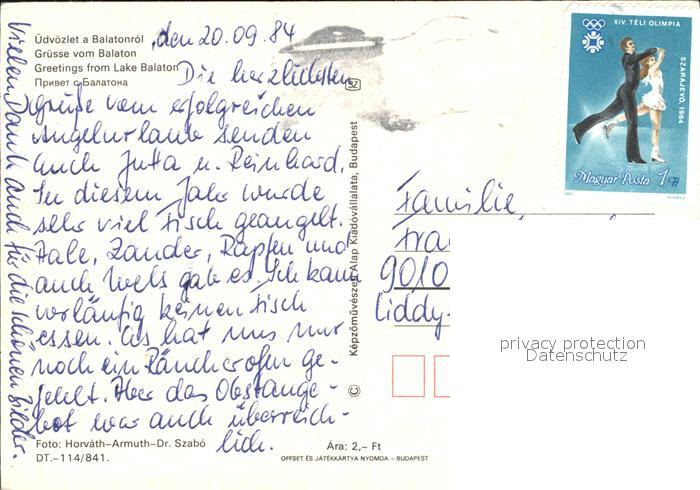 Üdvözlet a Balatonról
Grüsse vom Balaton
Greetings from Lake Balaton
Привет с Балатона
, den 20.09.84
Die herzlichsten
Grüße vom erfolgreichen
Angelurlaub senden
Euch Jutta u. Reinhard.
In diesem Jahr wurde
sehr viel Fisch geangelt.
Aale, Zander, Rapfen und
auch Wels gab es. Ich kann
vorläufig keinen Fisch
essen. Es hat uns nur
noch ein Räucherofen ge-
fehlt. Aber das Obstange-
bot war auch überreich-
lich.
Vielen Dank auch für die schönen Bilder.
Foto: Horváth–Armuth–Dr. Szabó
DT.–114/841.
Ára: 2,– Ft
OFFSET ÉS JÁTÉKKÁRTYA NYOMDA – BUDAPEST
© Képzőművészeti Alap Kiadóvállalata, Budapest
SZ
XIV. TÉLI OLIMPIA
SZARAJEVÓ, 1984
Magyar Posta 1 Ft
Familie
Fra
9010
Liddy-
privacy protection
Datenschutz